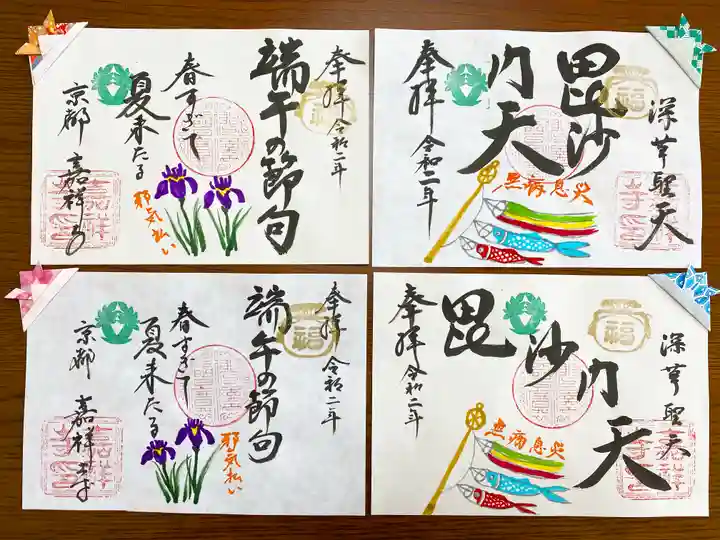 奉拝 令和二年
福
端午の節句
春すぎて
夏来たる
邪気払い
京都 嘉祥寺
深草聖天
福
毘沙
門天
無病息災
奉拝 令和二年
奉拝 令和二年
福
端午の節句
春すぎて
夏来たる
邪気払い
京都 嘉祥寺
深草聖天
福
毘沙門天
無病息災
奉拝 令和二年